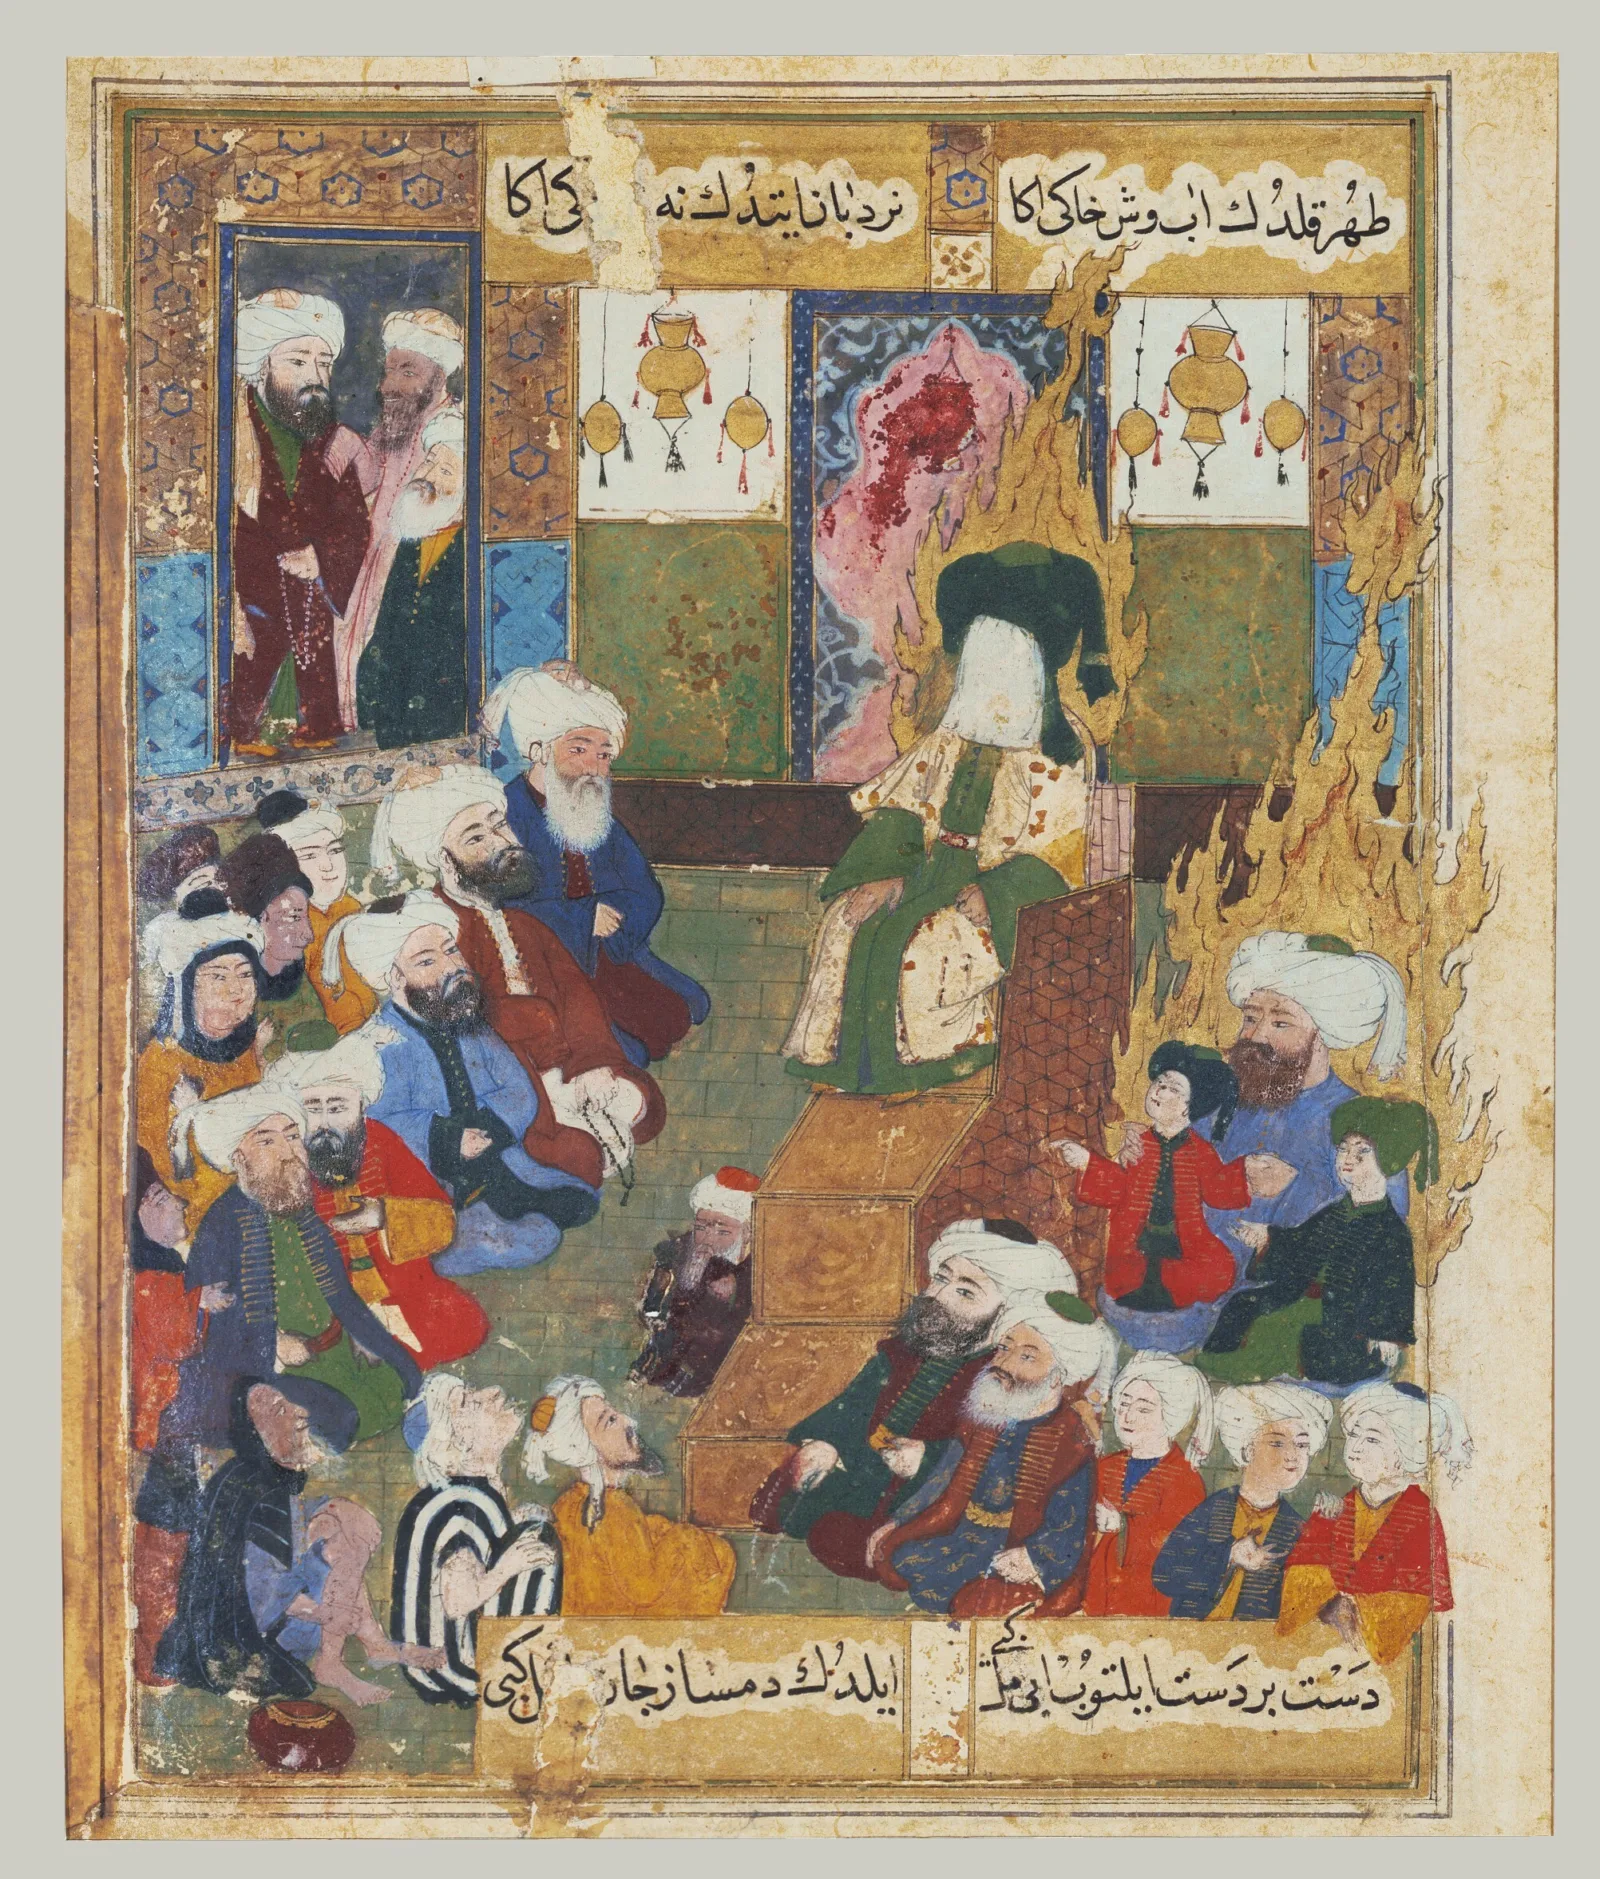 طهر قلدك اب وش خاكی اكا
نردبانا یتدك نه كی اكا
دست بر دست ایلتوب ابی
ایلدك دمساز جان